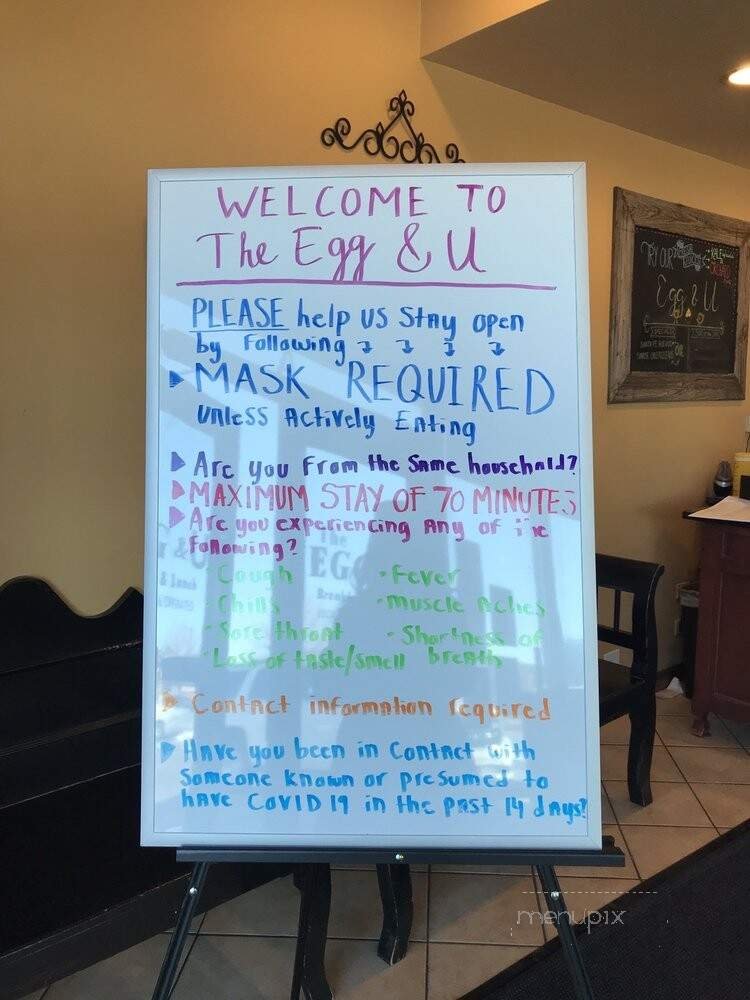 WELCOME TO
The Egg & U
PLEASE help us stay open
by following
MASK REQUIRED
unless Actively Eating
Are you from the same household?
MAXIMUM STAY OF 70 MINUTES
Are you experiencing Any of the
following?
Cough
• Fever
Chills
• muscle Aches
Sore throat
• Shortness of
breath
Loss of taste/smell
Contact information required
Have you been in Contact with
Someone known or presumed to
have COVID 19 in the past 14 days?
TRY OUR
Egg & U
menupix